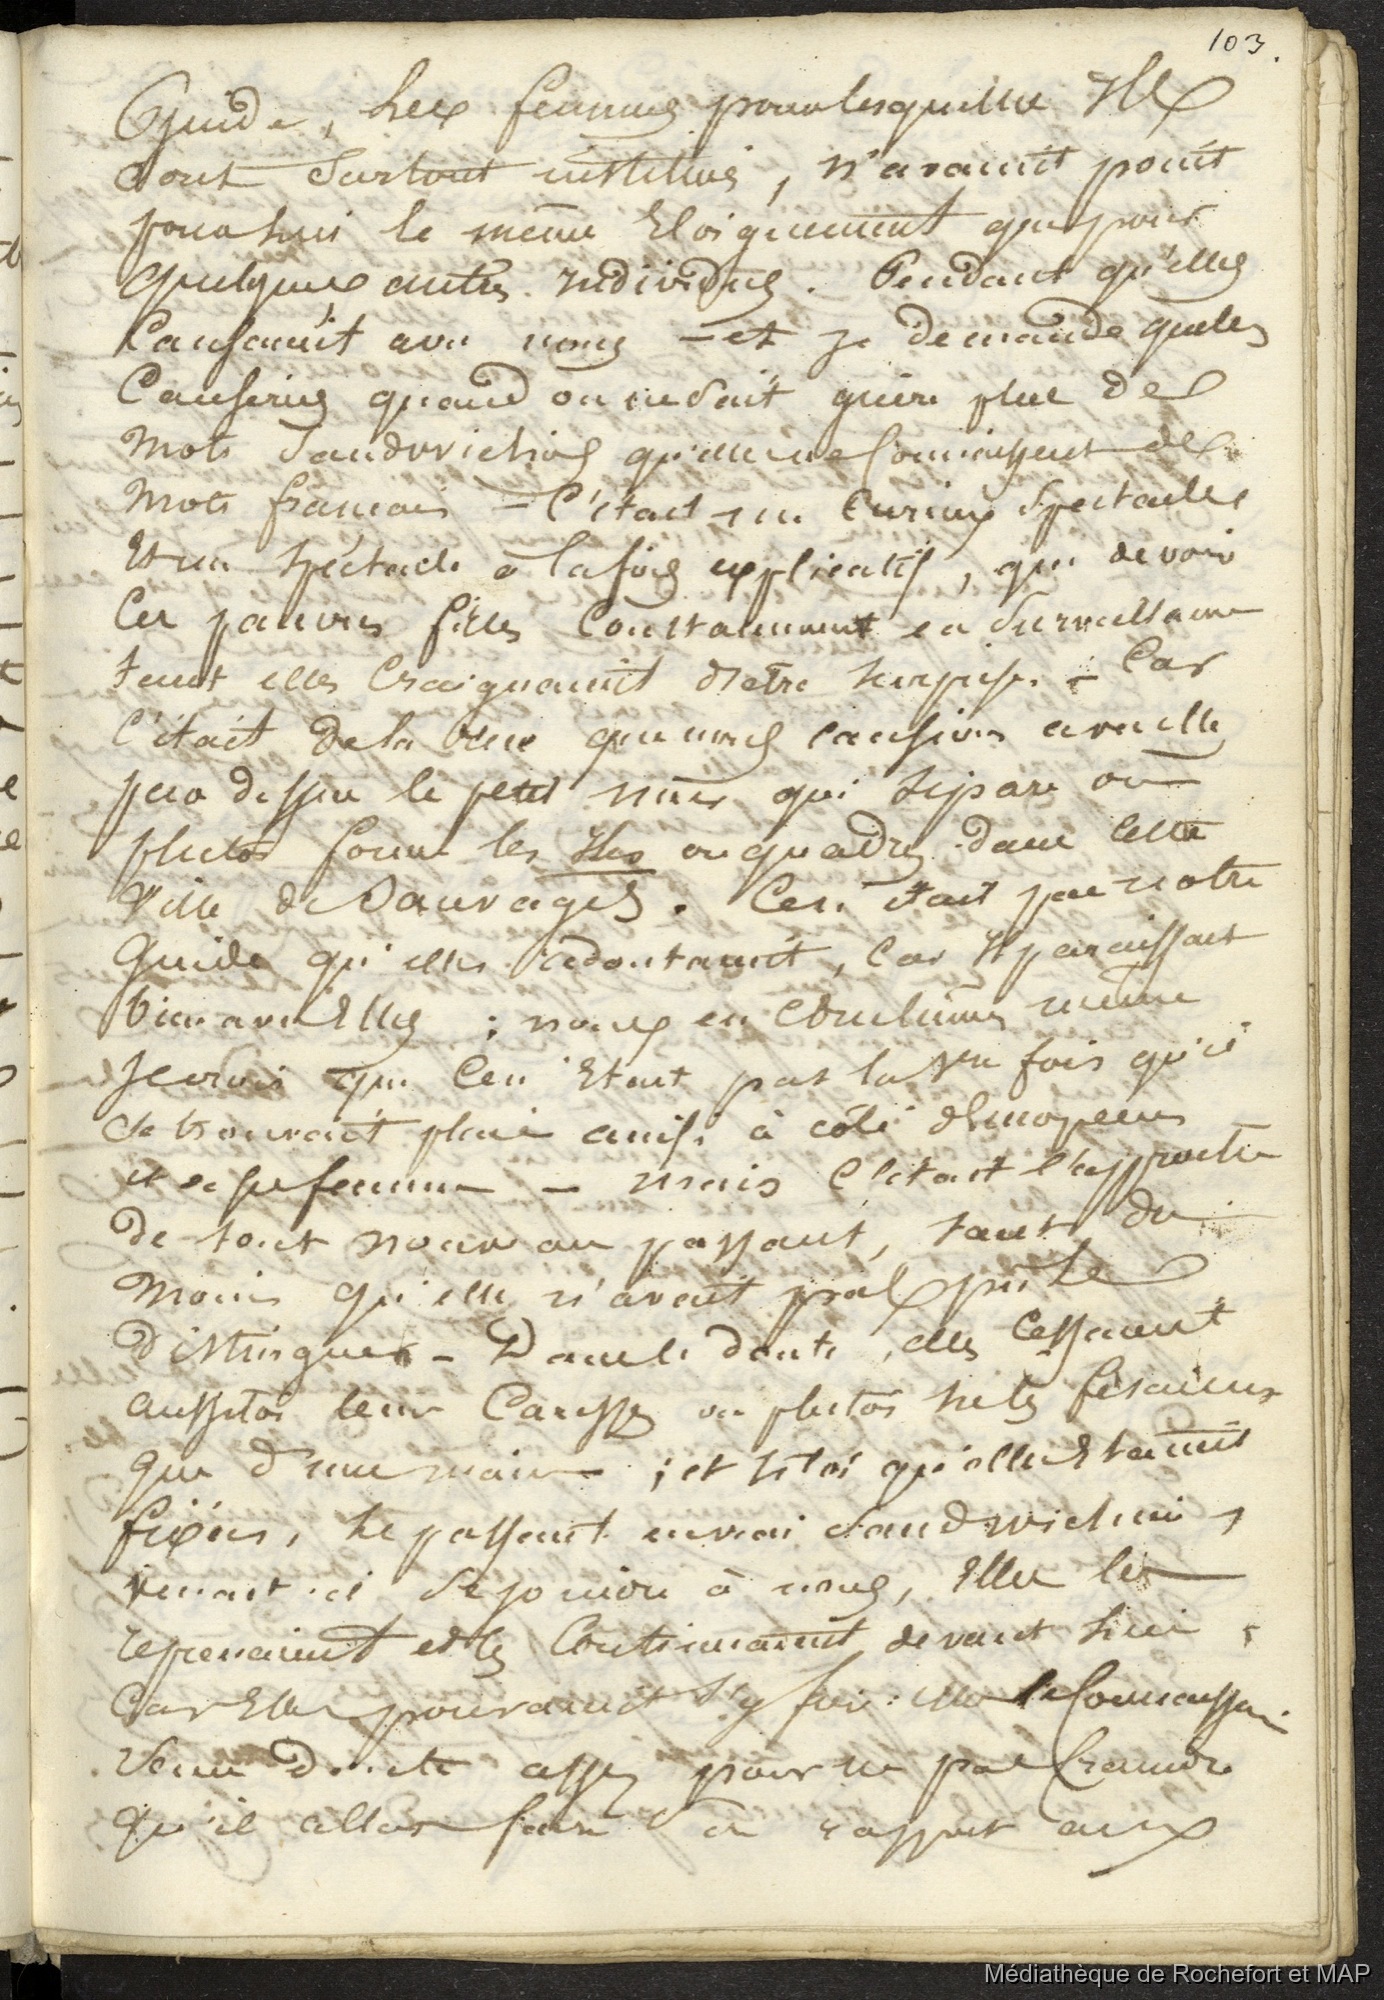 103.
Guide, les femmes pour lesquelles Ils
sont surtout institués, n'avaient point
pour lui le même Eloignement que pour
quelques autres individus. Pendant qu'elles
Causaient avec nous - et je demande quelles
Causeries quand on ne sait guère plus de
Mots Sandwichiens qu'elles ne Connaissent de
Mots français - C'était un Curieux Spectacle
Et un spectacle à la fois explicatif, que de voir
Ces pauvres filles Constamment en Surveillance
tant elles Craignaient d'être surprises - Car
C'était de la rue que nous causions avec elles
par dessus le petit mur qui sépare ou
plutôt forme les Iles ou quadres dans Cette
Ville de Sauvages. Ce n'était pas notre
Guide qu'elles redoutaient, Car Il paraissait
bien avec Elles ; nous en Conclûmes même
Je crois que Ce n'Etait pas la 1re fois qu'il
se trouvait placé ainsi à côté d'Européens
et de femmes - mais C'était l'approche
de tout nouveau passant, tant du
Moins qu'elles n'avaient pas pu le
distinguer - Dans le doute, elles Cessaient
aussitôt leurs Caresses ou plutôt ne les fesaient
que d'une main ; et sitôt qu'elles Etaient
fixées, le passant en vrai Sandwichien,
venant-il se joindre à nous, Elles les
reprenaient et les Continuaient devant lui,
Car Elles pouvaient s'y fier : elles le Connaissaient
sans doute assez pour ne pas Craindre
qu'il allât faire un rapport aux
Médiathèque de Rochefort et MAP